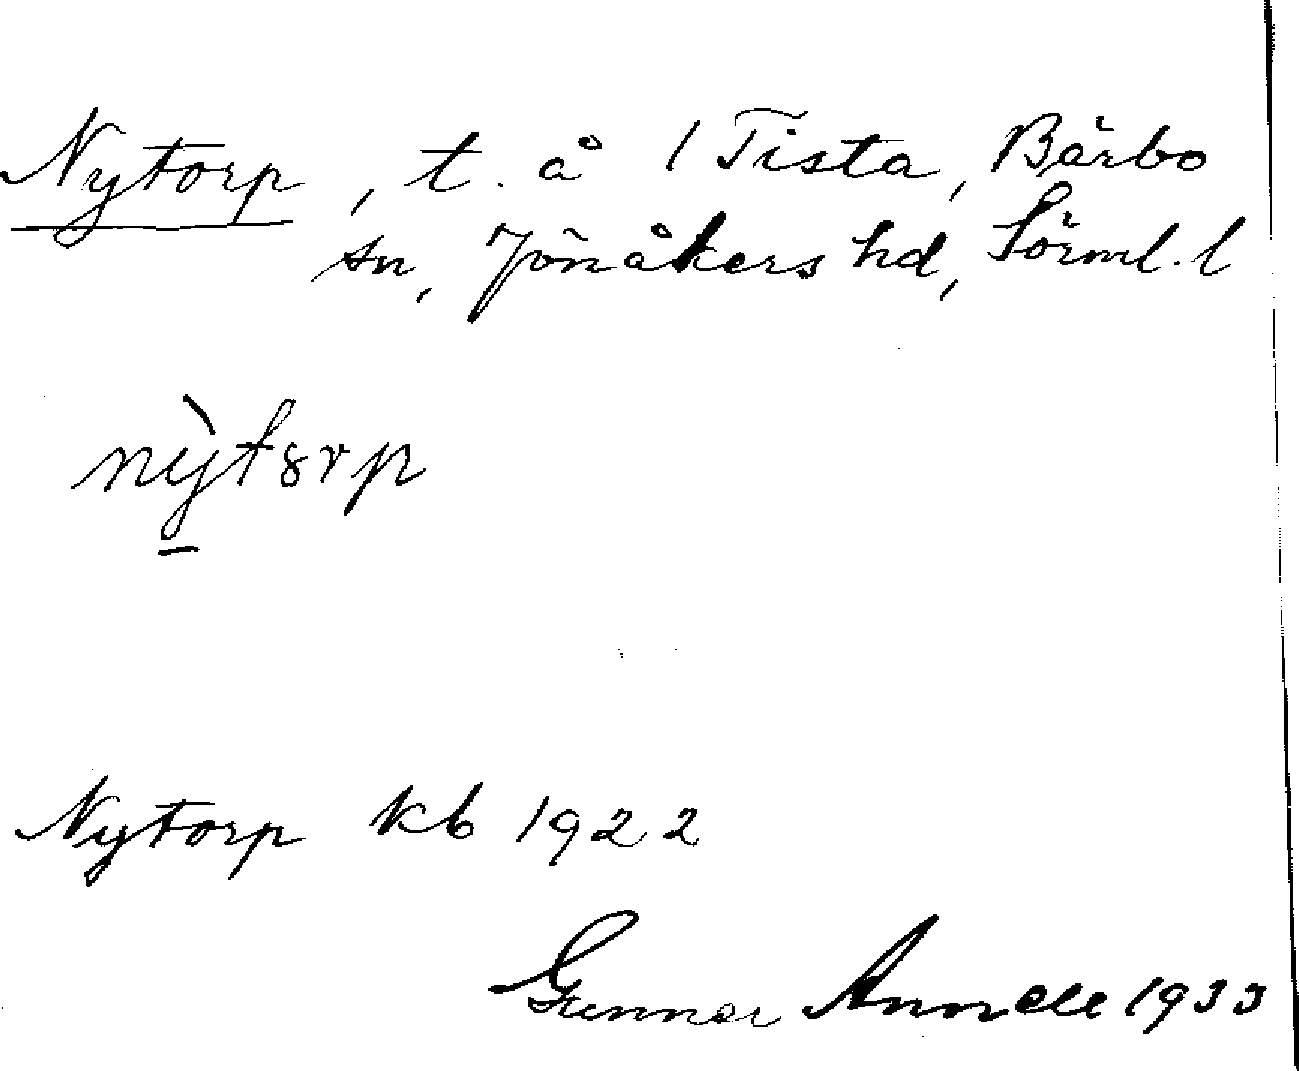 Nytorp, t. å 1 Tista, Bärbo
sn, Jönåkers hd, Sörml. l
nỳtsrp
Nytorp kb 1922
Gunnar Annell 1933